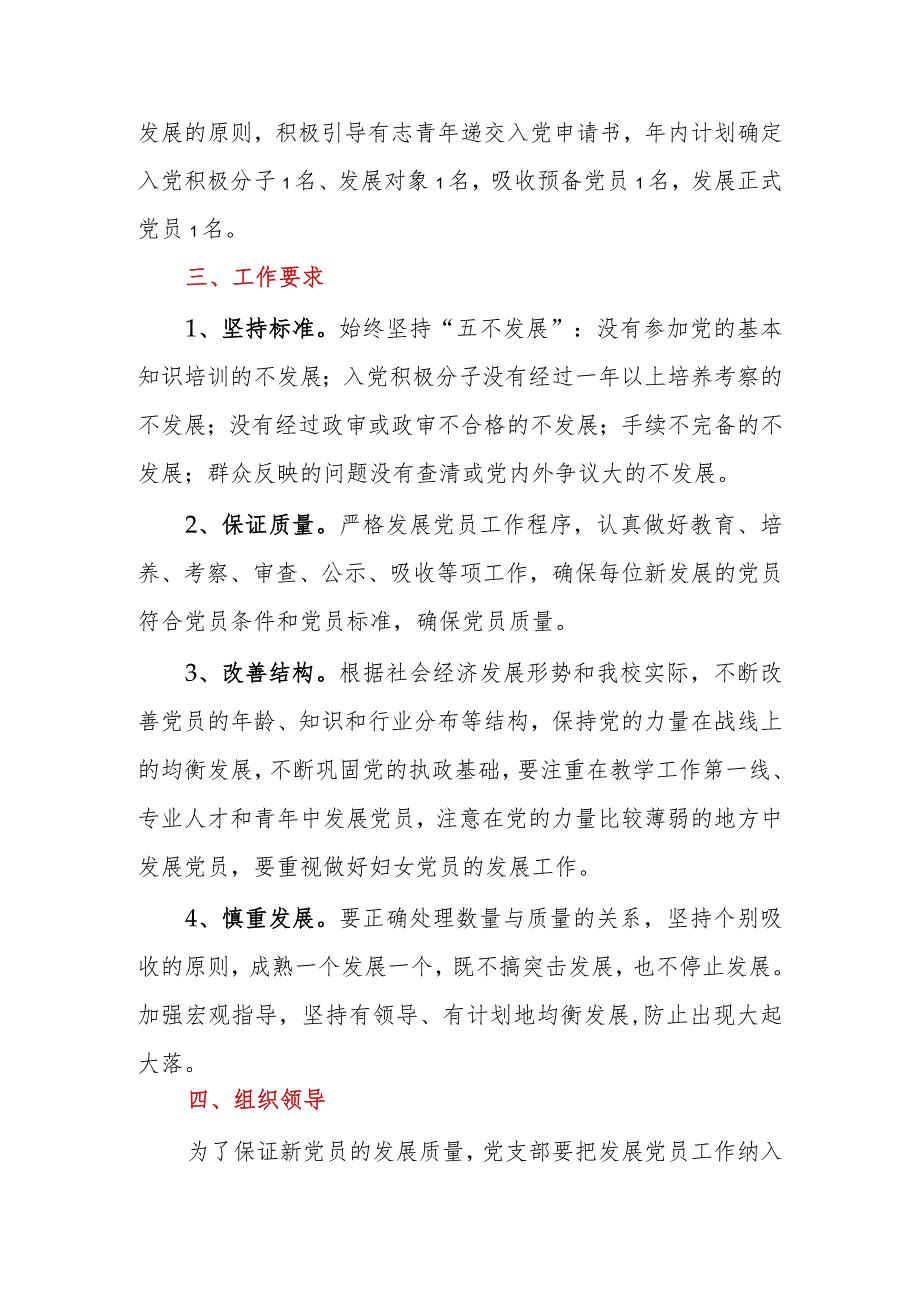 发展的原则，积极引导有志青年递交入党申请书，年内计划确定
入党积极分子1名、发展对象1名，吸收预备党员1名，发展正式
党员1名。
三、工作要求
1、坚持标准。始终坚持“五不发展”：没有参加党的基本
知识培训的不发展；入党积极分子没有经过一年以上培养考察的
不发展；没有经过政审或政审不合格的不发展；手续不完备的不
发展；群众反映的问题没有查清或党内外争议大的不发展。
2、保证质量。严格发展党员工作程序，认真做好教育、培
养、考察、审查、公示、吸收等项工作，确保每位新发展的党员
符合党员条件和党员标准，确保党员质量。
3、改善结构。根据社会经济发展形势和我校实际，不断改
善党员的年龄、知识和行业分布等结构，保持党的力量在战线上
的均衡发展，不断巩固党的执政基础，要注重在教学工作第一线、
专业人才和青年中发展党员，注意在党的力量比较薄弱的地方中
发展党员，要重视做好妇女党员的发展工作。
4、慎重发展。要正确处理数量与质量的关系，坚持个别吸
收的原则，成熟一个发展一个，既不搞突击发展，也不停止发展。
加强宏观指导，坚持有领导、有计划地均衡发展,防止出现大起
大落。
四、组织领导
为了保证新党员的发展质量，党支部要把发展党员工作纳入